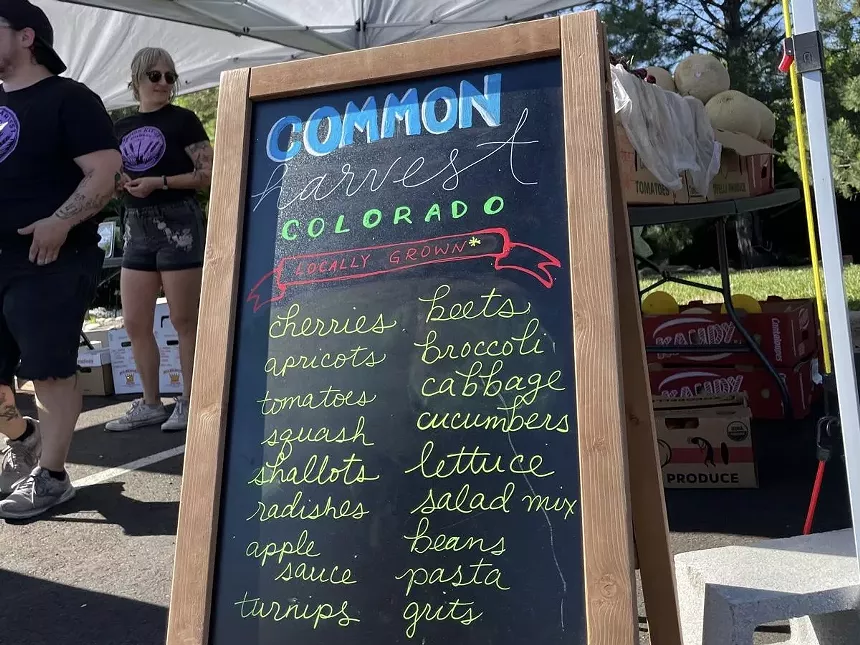 COMMON
harvest
COLORADO
LOCALLY GROWN*
cherries
apricots
tomatoes
squash
shallots
radishes
apple
sauce
turnips
beets
broccoli
cabbage
cucumbers
lettuce
salad mix
beans
pasta
grits
TOMATOES
KANDY
Cantaloupes
KANDY
PRODUCE